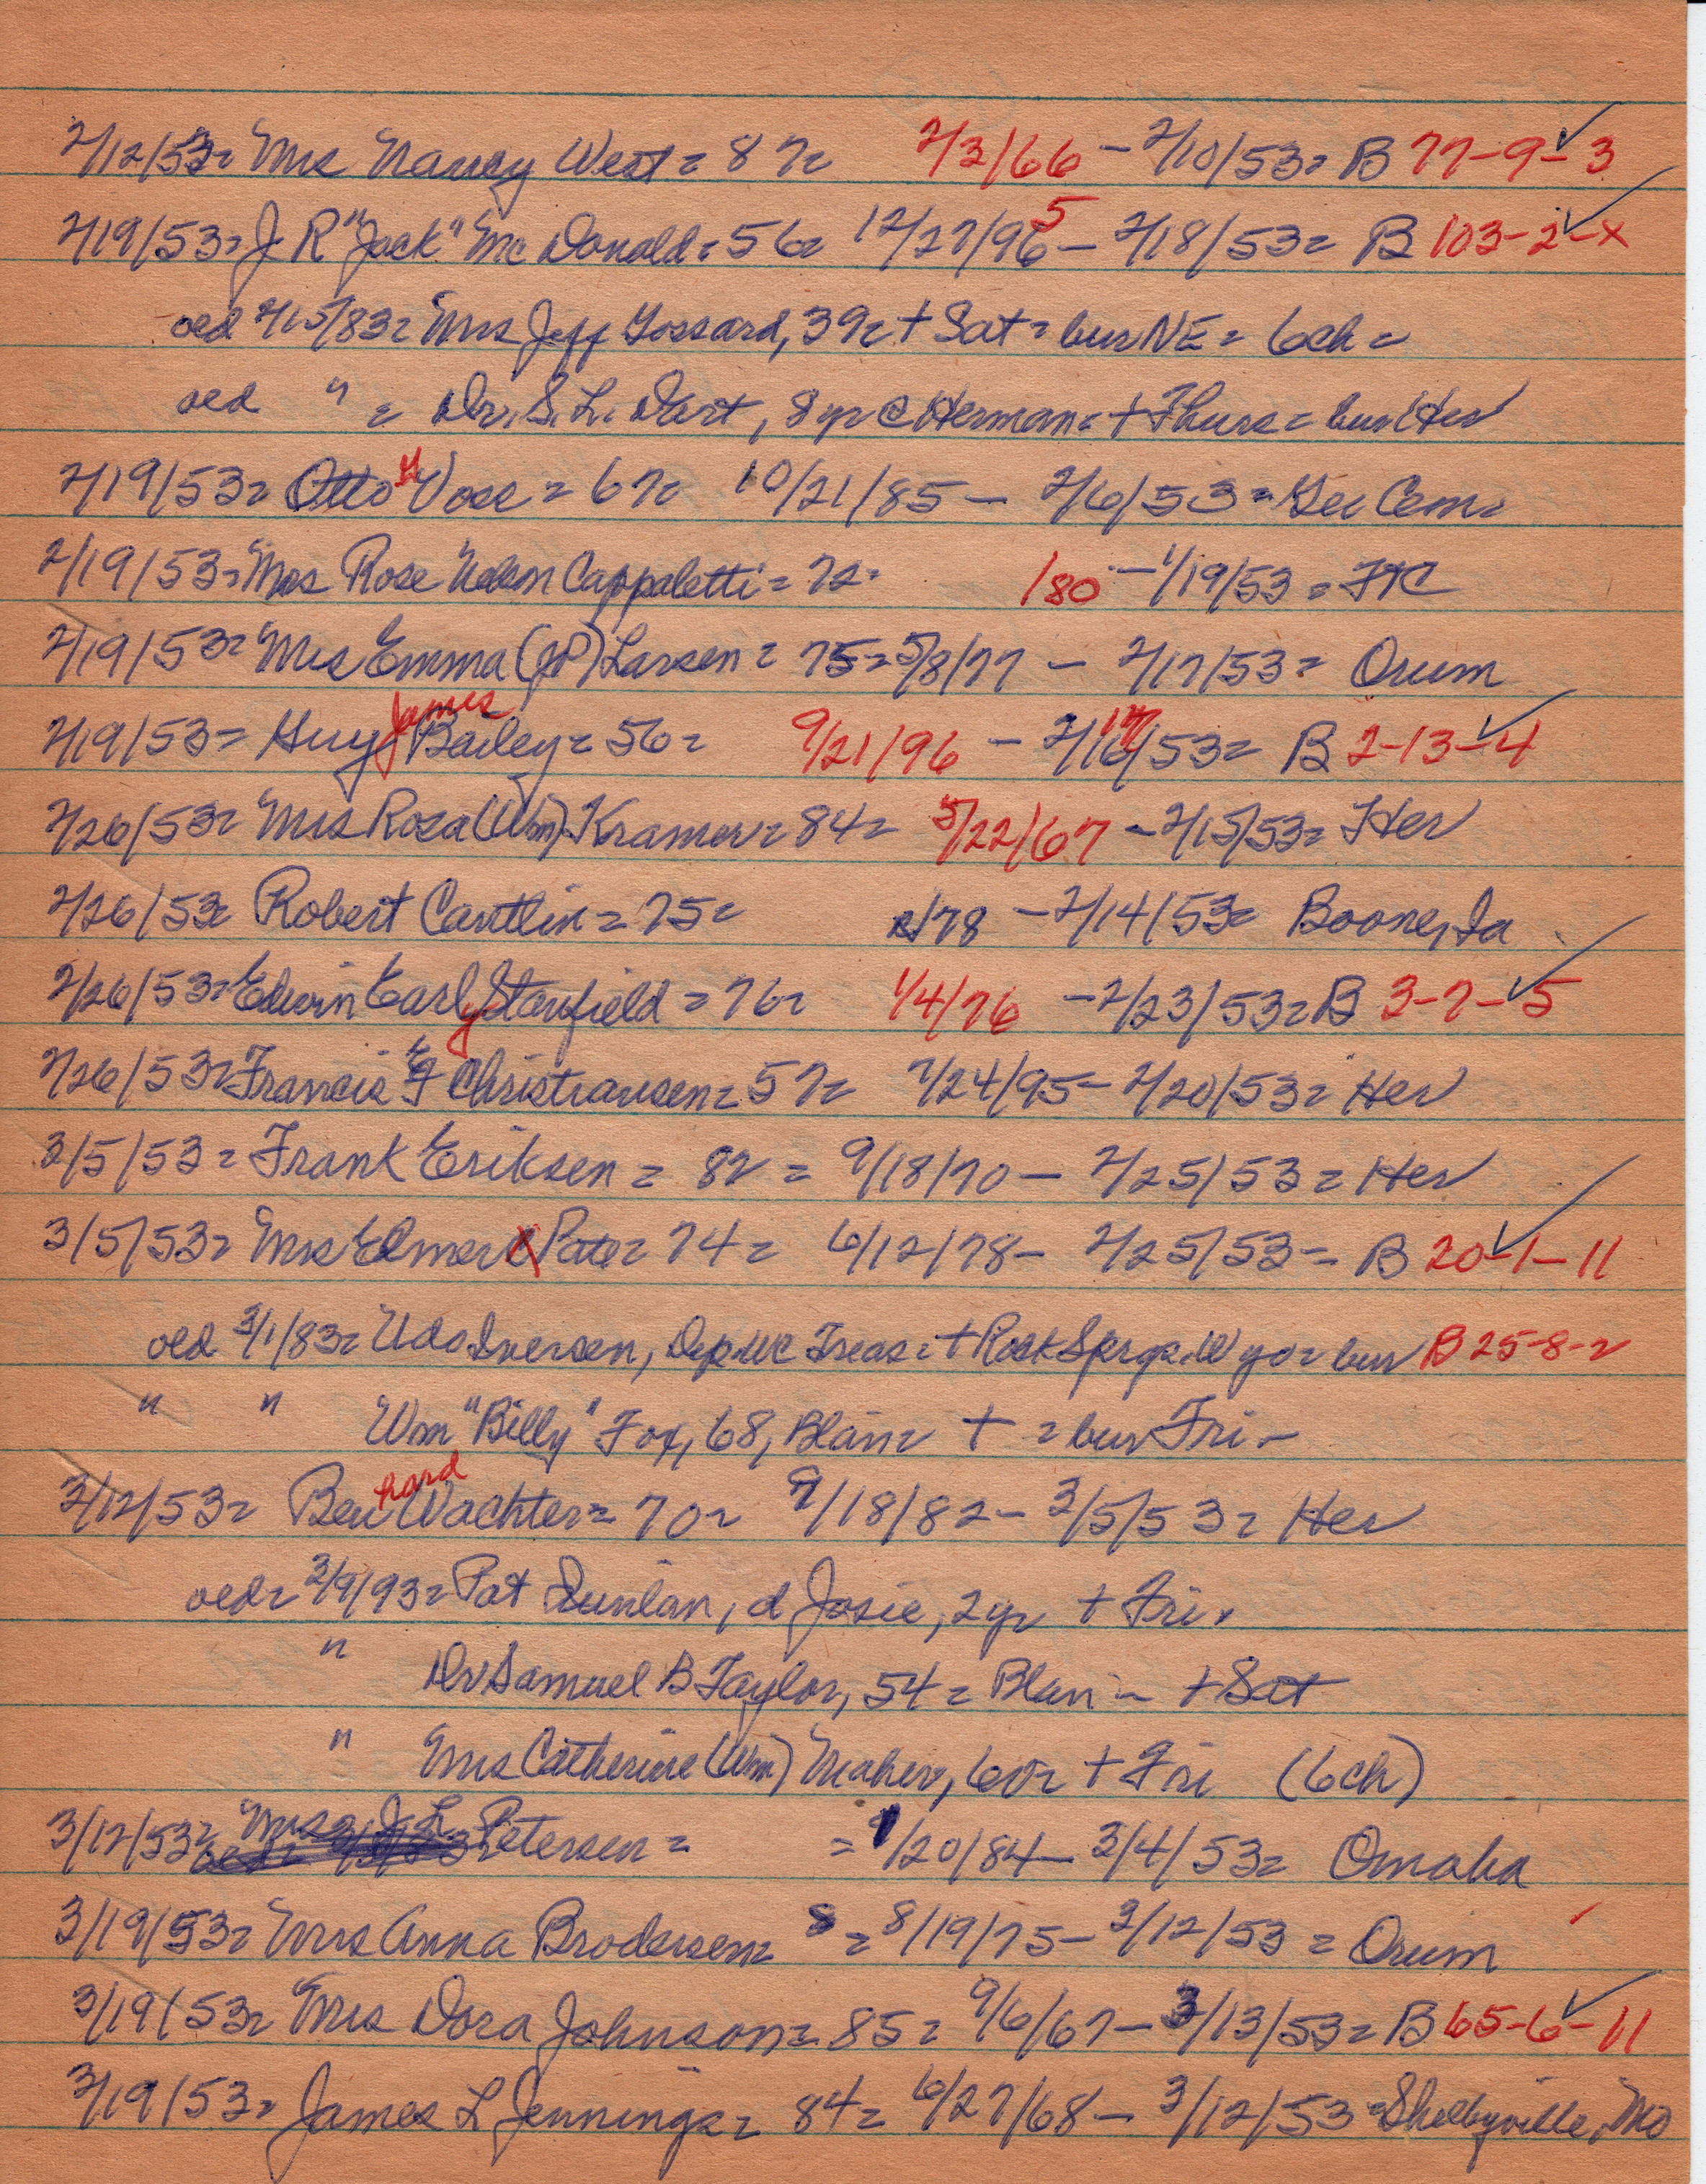 2/12/53= Mrs Nancy West = 87= 2/3/66 - 2/10/53= B 77-9-3
2/19/53= J R "Jack" Mc Donald = 56= 12/27/96 5 - 2/18/53= B 103-2-x
oed 2/15/83= Mrs Jeff Gossard, 39= + Sat = bur NE = 6ch =
oed " = Dr. S. L. Dart, 8yr @ Herman = + Thurs = bur Her
2/19/53= Otto H Vose = 67= 10/21/85 - 2/6/53 = Gec Cem=
2/19/53= Mrs Rose Nelson Cappaletti = 72= /80 - 1/19/53 = FTC
2/19/53= Mrs Emma (JP) Larsen = 75= 5/8/77 - 2/17/53= Orum
2/19/53= Guy James Bailey = 56= 9/21/96 - 2/16/53= 17 B 2-13-4
2/26/53= Mrs Rosa (Wm) Kramer = 84= 5/22/67 - 2/15/53= Her
2/26/53= Robert Cantlin = 75= /78 - 2/14/53= Boone, Ia
2/26/53= Edwin Early Stanfield = 76= 1/4/76 - 2/23/53= B 3-7-5
2/26/53= Francis E Christiansen = 57= 7/24/95 - 2/20/53= Her
3/5/53= Frank Eriksen = 82 = 9/18/70 - 2/25/53= Her
3/5/53= Mrs Elmer Pate = 74= 6/12/78 - 2/25/53= B 20-1-11
oed 3/1/83= Udo Iversen, Dep WC Treas = + Rock Sprgs, Wyo= bur B 25-8-2
" " Wm "Billy" Fox, 68, Blair= + = bur Fri -
3/12/53= Bernhard Wachter = 70= 9/18/82 - 3/5/53= Her
oed= 3/9/93= Pat Dunlan, d Josie, 2yr + Fri.
" Dr Samuel B Taylor, 54 = Blair - + Sat
" Mrs Catherine (Wm) Maher, 60= + Fri (6ch)
3/12/53= Mrs J. L. Petersen = = 1/20/84 - 3/4/53= Omaha
3/19/53= Mrs Anna Brodersen= = 8/19/75 - 3/12/53 = Orum
3/19/53= Mrs Dora Johnson= 85= 9/6/67 - 3/13/53= B 65-6-11
3/19/53= James L Jennings= 84= 6/27/68 - 3/12/53= Shelbyville, Mo